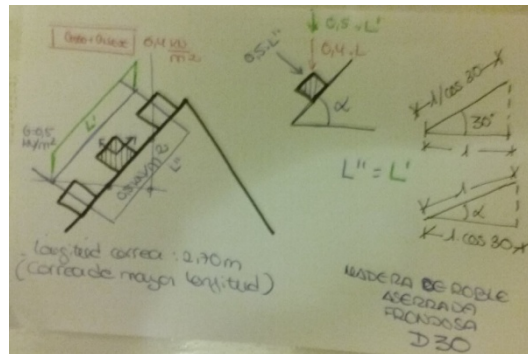 0,4 kN/m2
L'
L''
0,5·L''
0,5·L'
0,4·L
α
L'' = L'
1/cos 30
30°
1
1
α
1·cos 30
Longitud correa: 2,70m
(correa de mayor longitud)
MADERA DE ROBLE
ASERRADA
FRONDOSA
D30